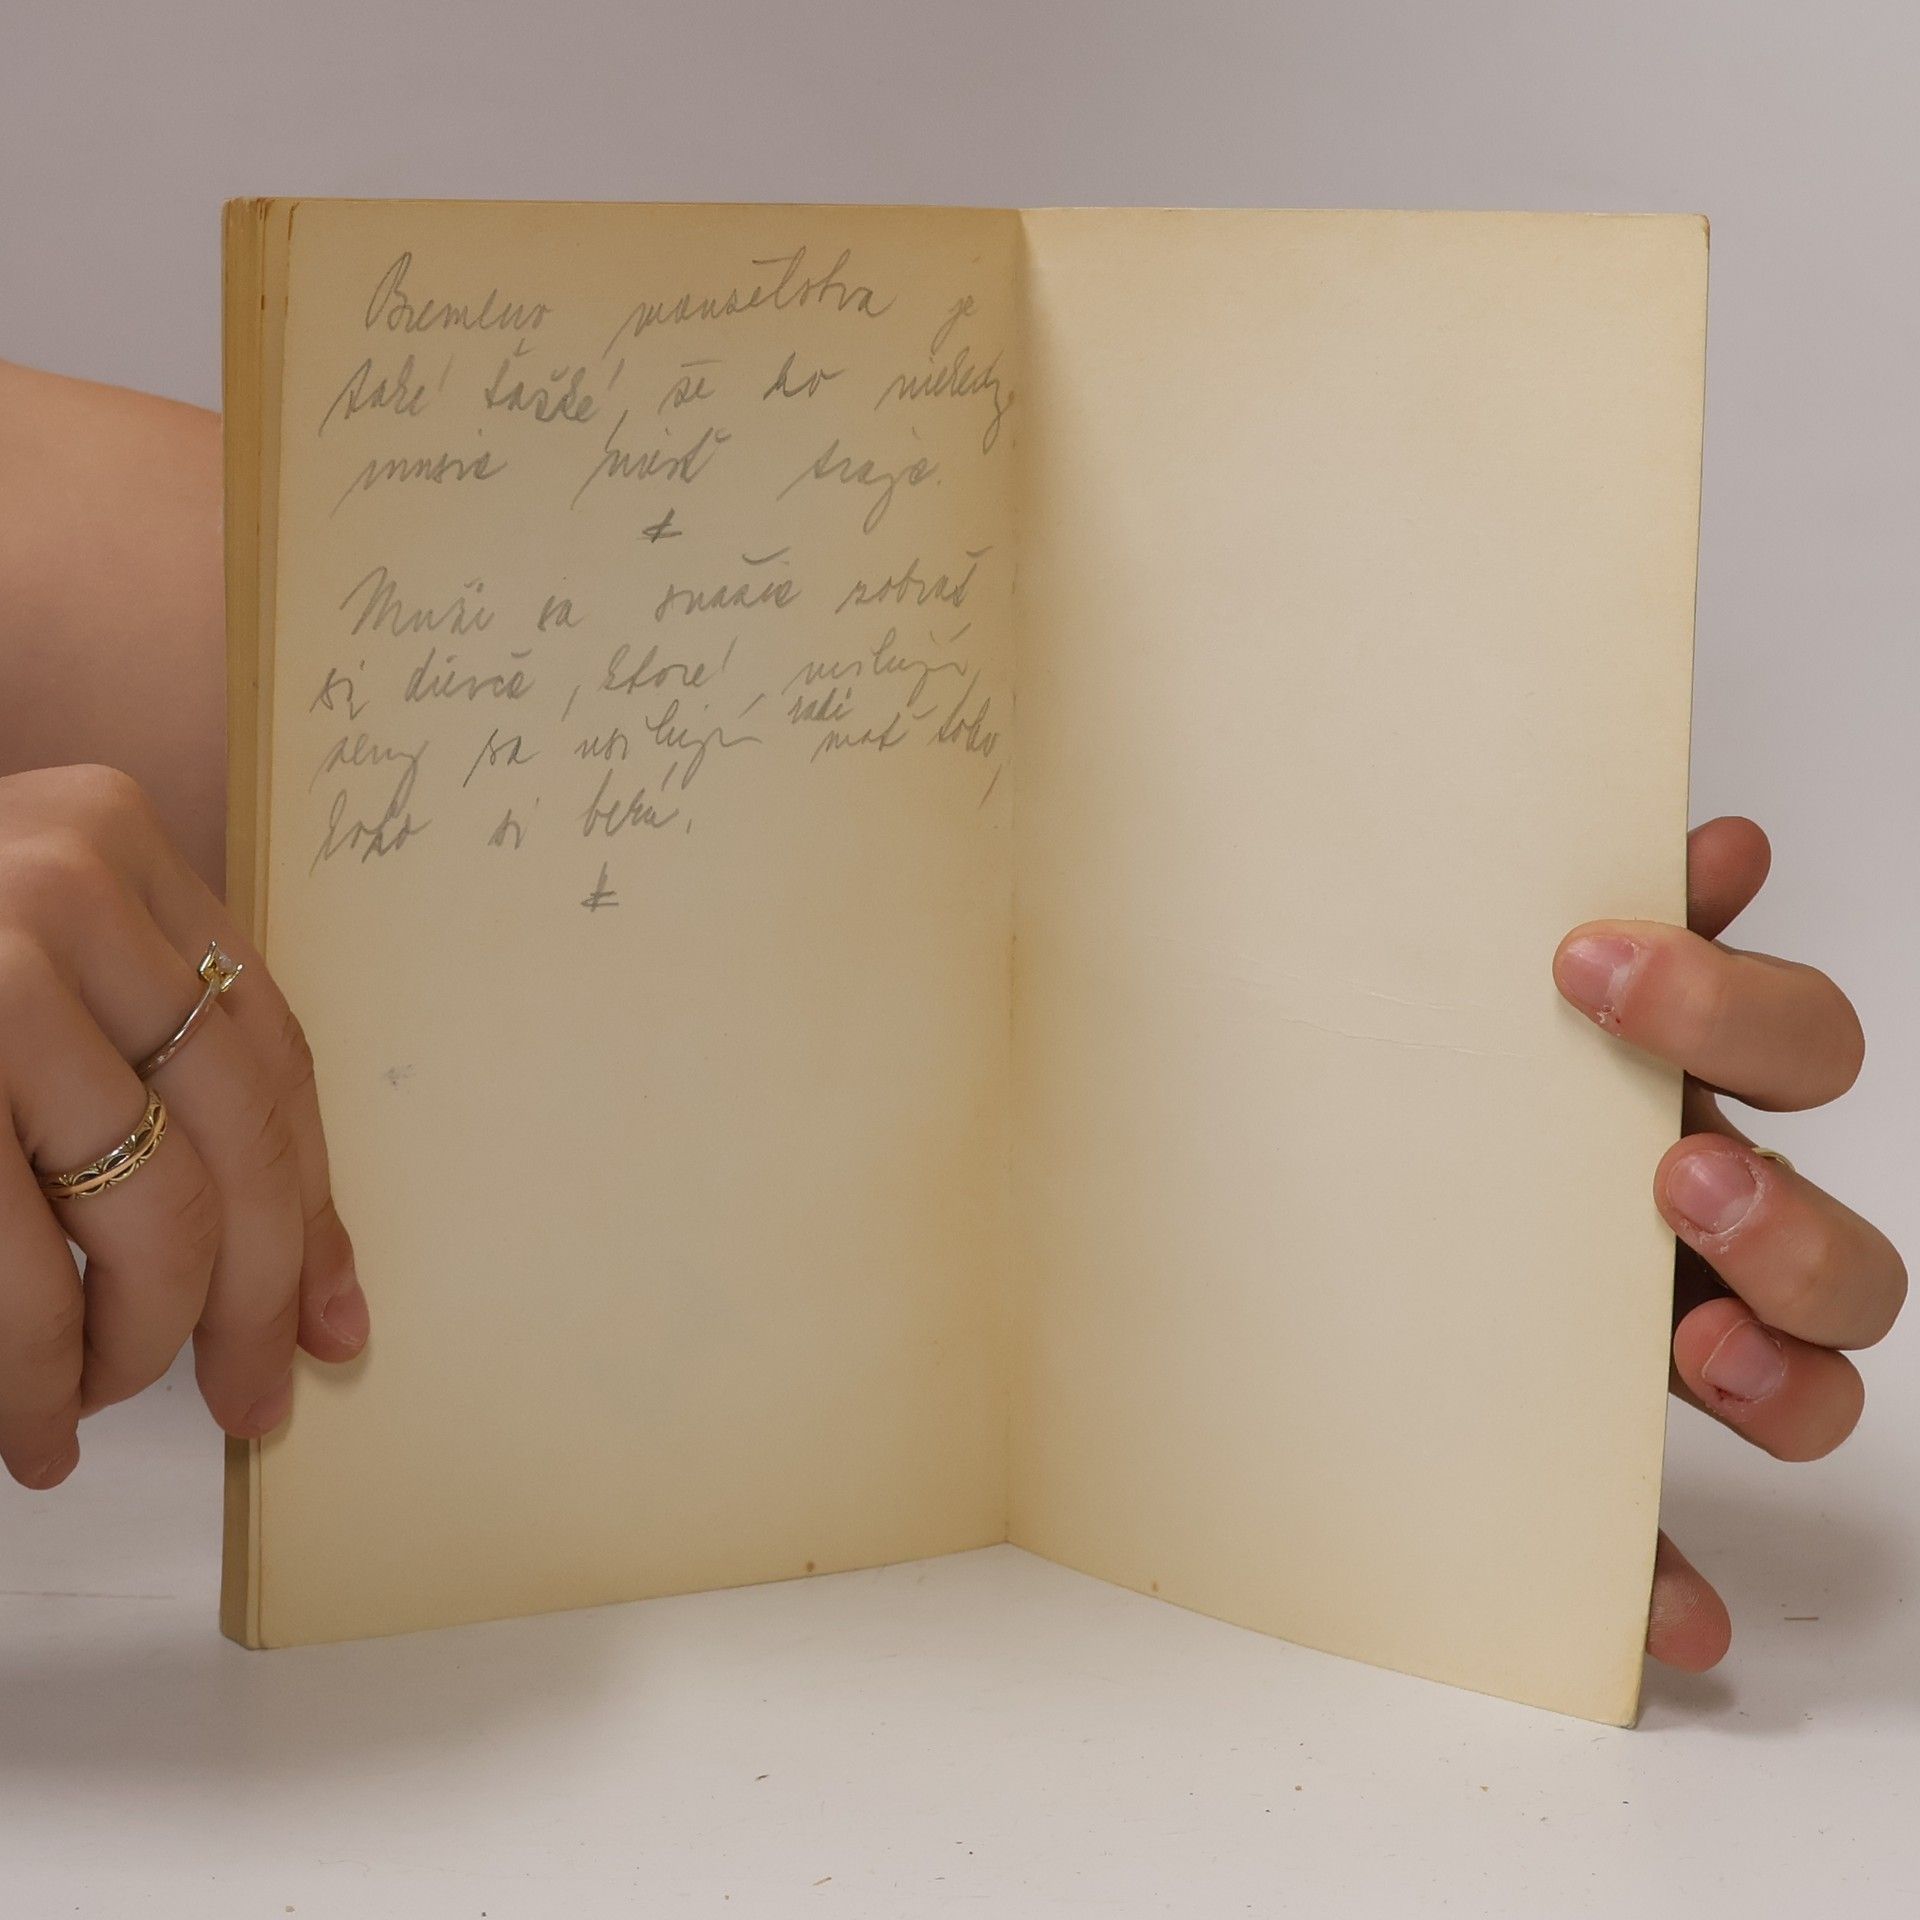 Bremeno manželstva je
také ťažké, že ho niekedy
musia niesť traja.
*
Muži sa snažia zobrať
si dievča, ktoré milujú,
ženy sa usilujú radi mať toho,
koho si berú.
*